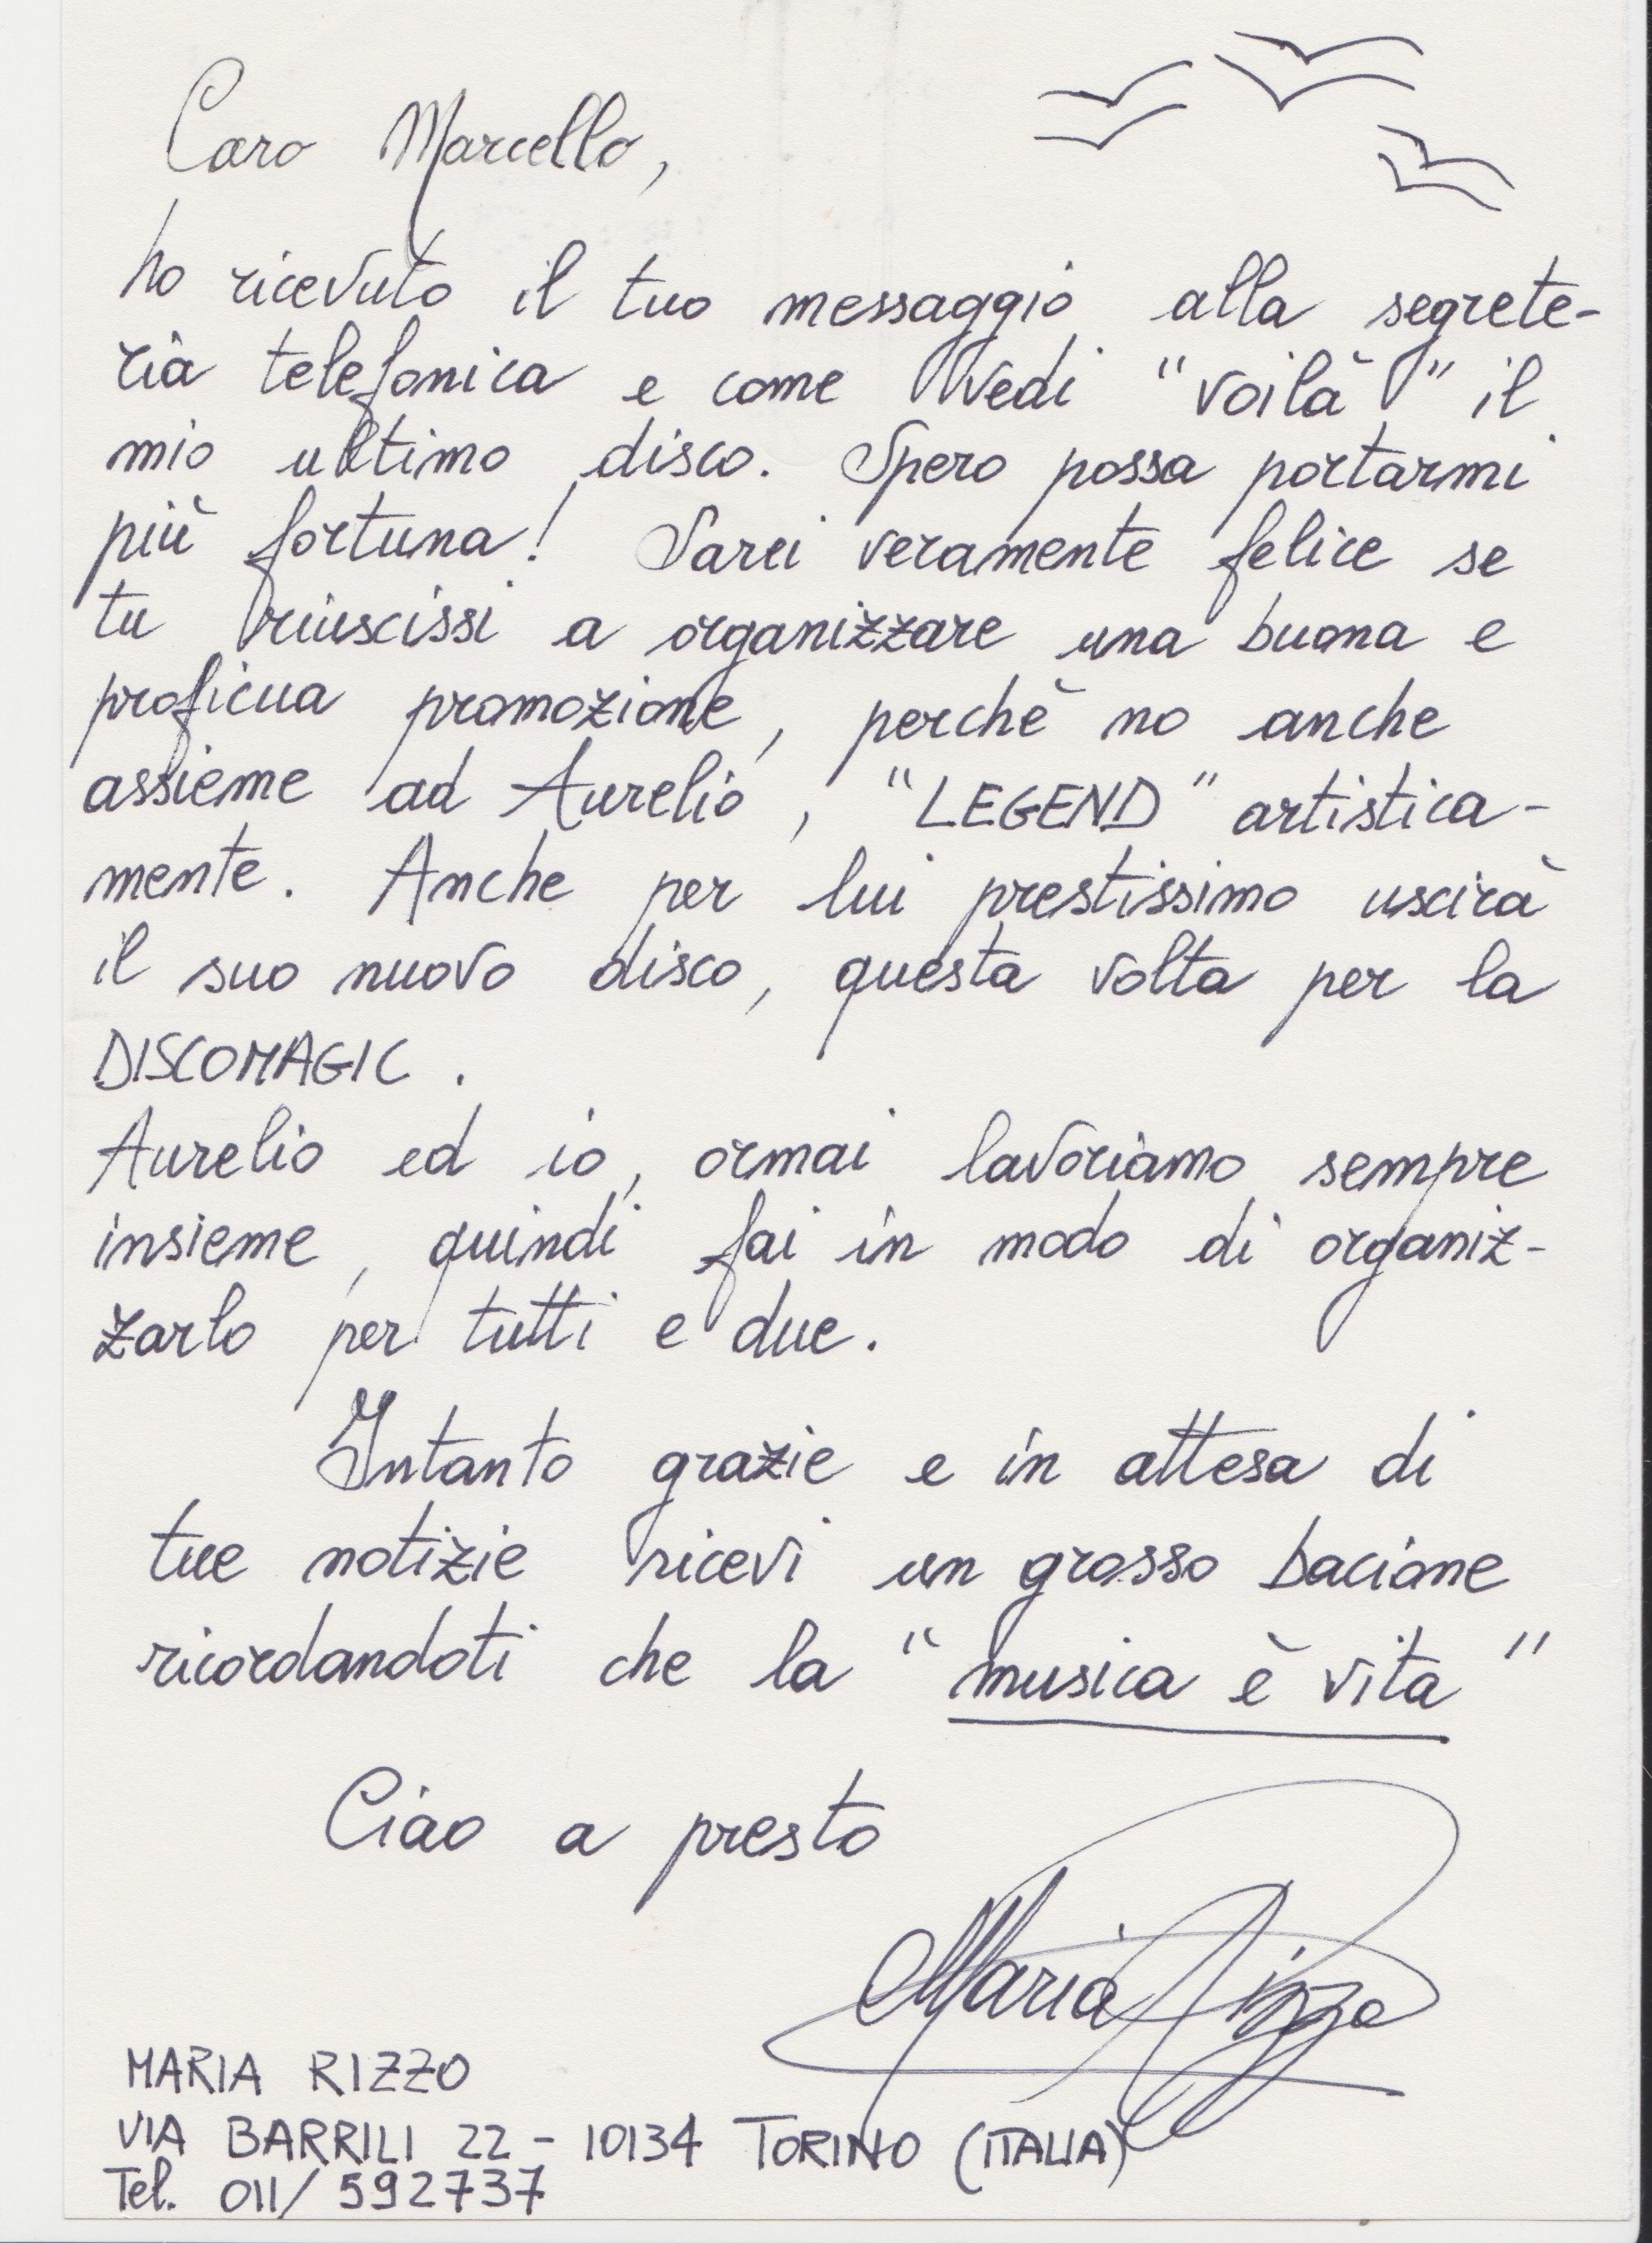 Caro Marcello,
ho ricevuto il tuo messaggio alla segrete-
ria telefonica e come vedi "voilà" il
mio ultimo disco. Spero possa portarmi
più fortuna! Sarei veramente felice se
tu riuscissi a organizzare una buona e
proficua promozione, perchè no anche
assieme ad Aurelio, "LEGEND" artistica-
mente. Anche per lui prestissimo uscirà
il suo nuovo disco, questa volta per la
DISCOMAGIC.
Aurelio ed io, ormai lavoriamo sempre
insieme, quindi fai in modo di organiz-
zarlo per tutti e due.
Intanto grazie e in attesa di
tue notizie ricevi un grosso bacione
ricordandoti che la "musica è vita"
Ciao a presto
Maria Rizzo
MARIA RIZZO
VIA BARRILI 22 - 10134 TORINO (ITALIA)
Tel. 011/592737